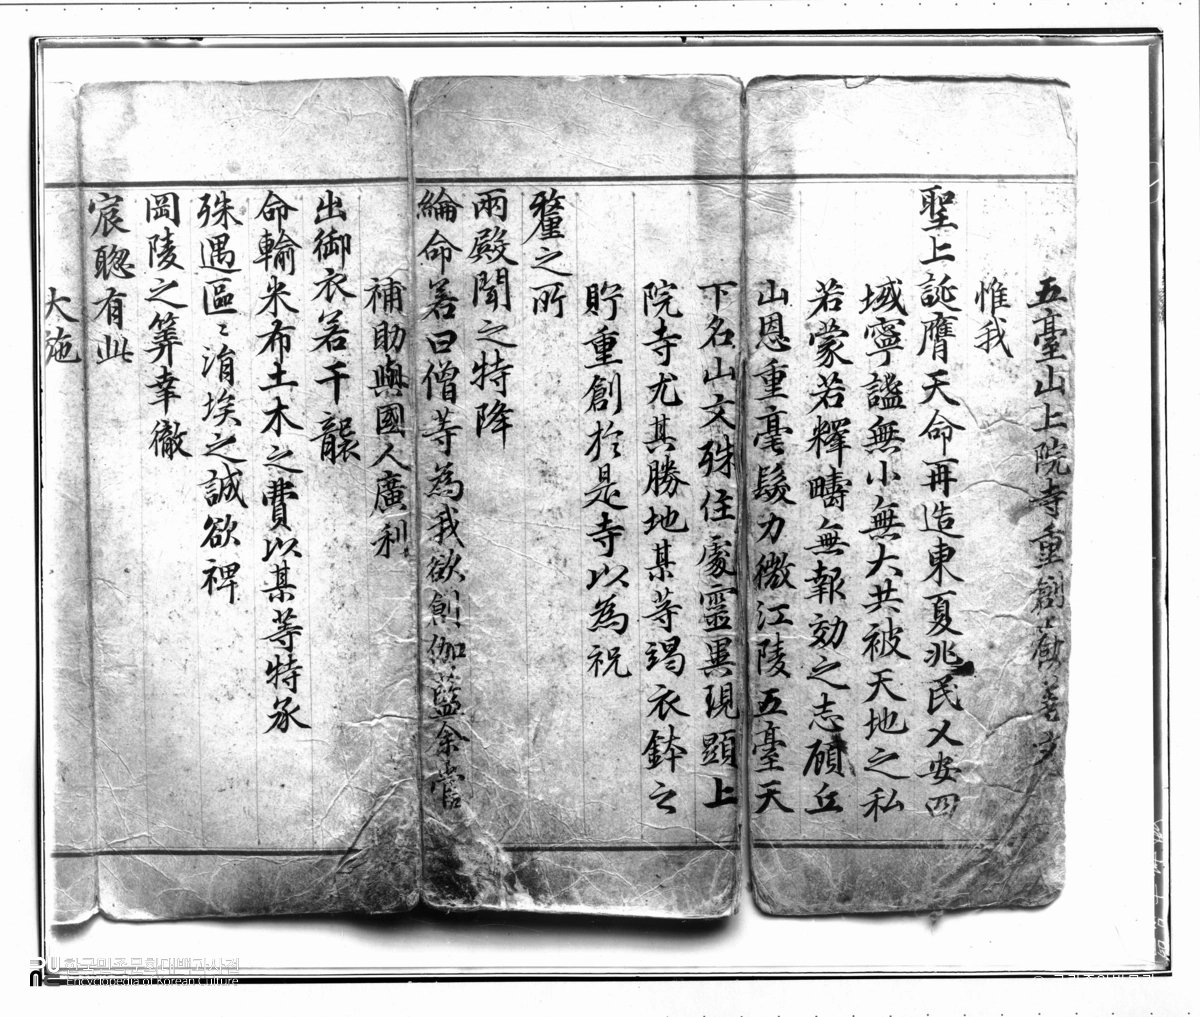 五臺山上院寺重創勸善文
惟我
聖上誕膺天命再造東夏兆民乂安四
域寧謐無小無大共被天地之私
若蒙若釋疇無報効之志顧丘
山恩重毫髮力微江陵五臺天
下名山文殊住處靈異現顯上
院寺尤其勝地某等竭衣鉢之
貯重創於是寺以為祝
釐之所
兩殿聞之特降
綸命若曰僧等為我欲創伽藍余當
補助與國人廣利
出御衣若干襲
命輸米布土木之費以某等特承
殊遇區〻涓埃之誠欲裨
岡陵之筭幸徹
宸聦有此
大施
한국민족문화대백과사전
Encyclopedia of Korean Culture